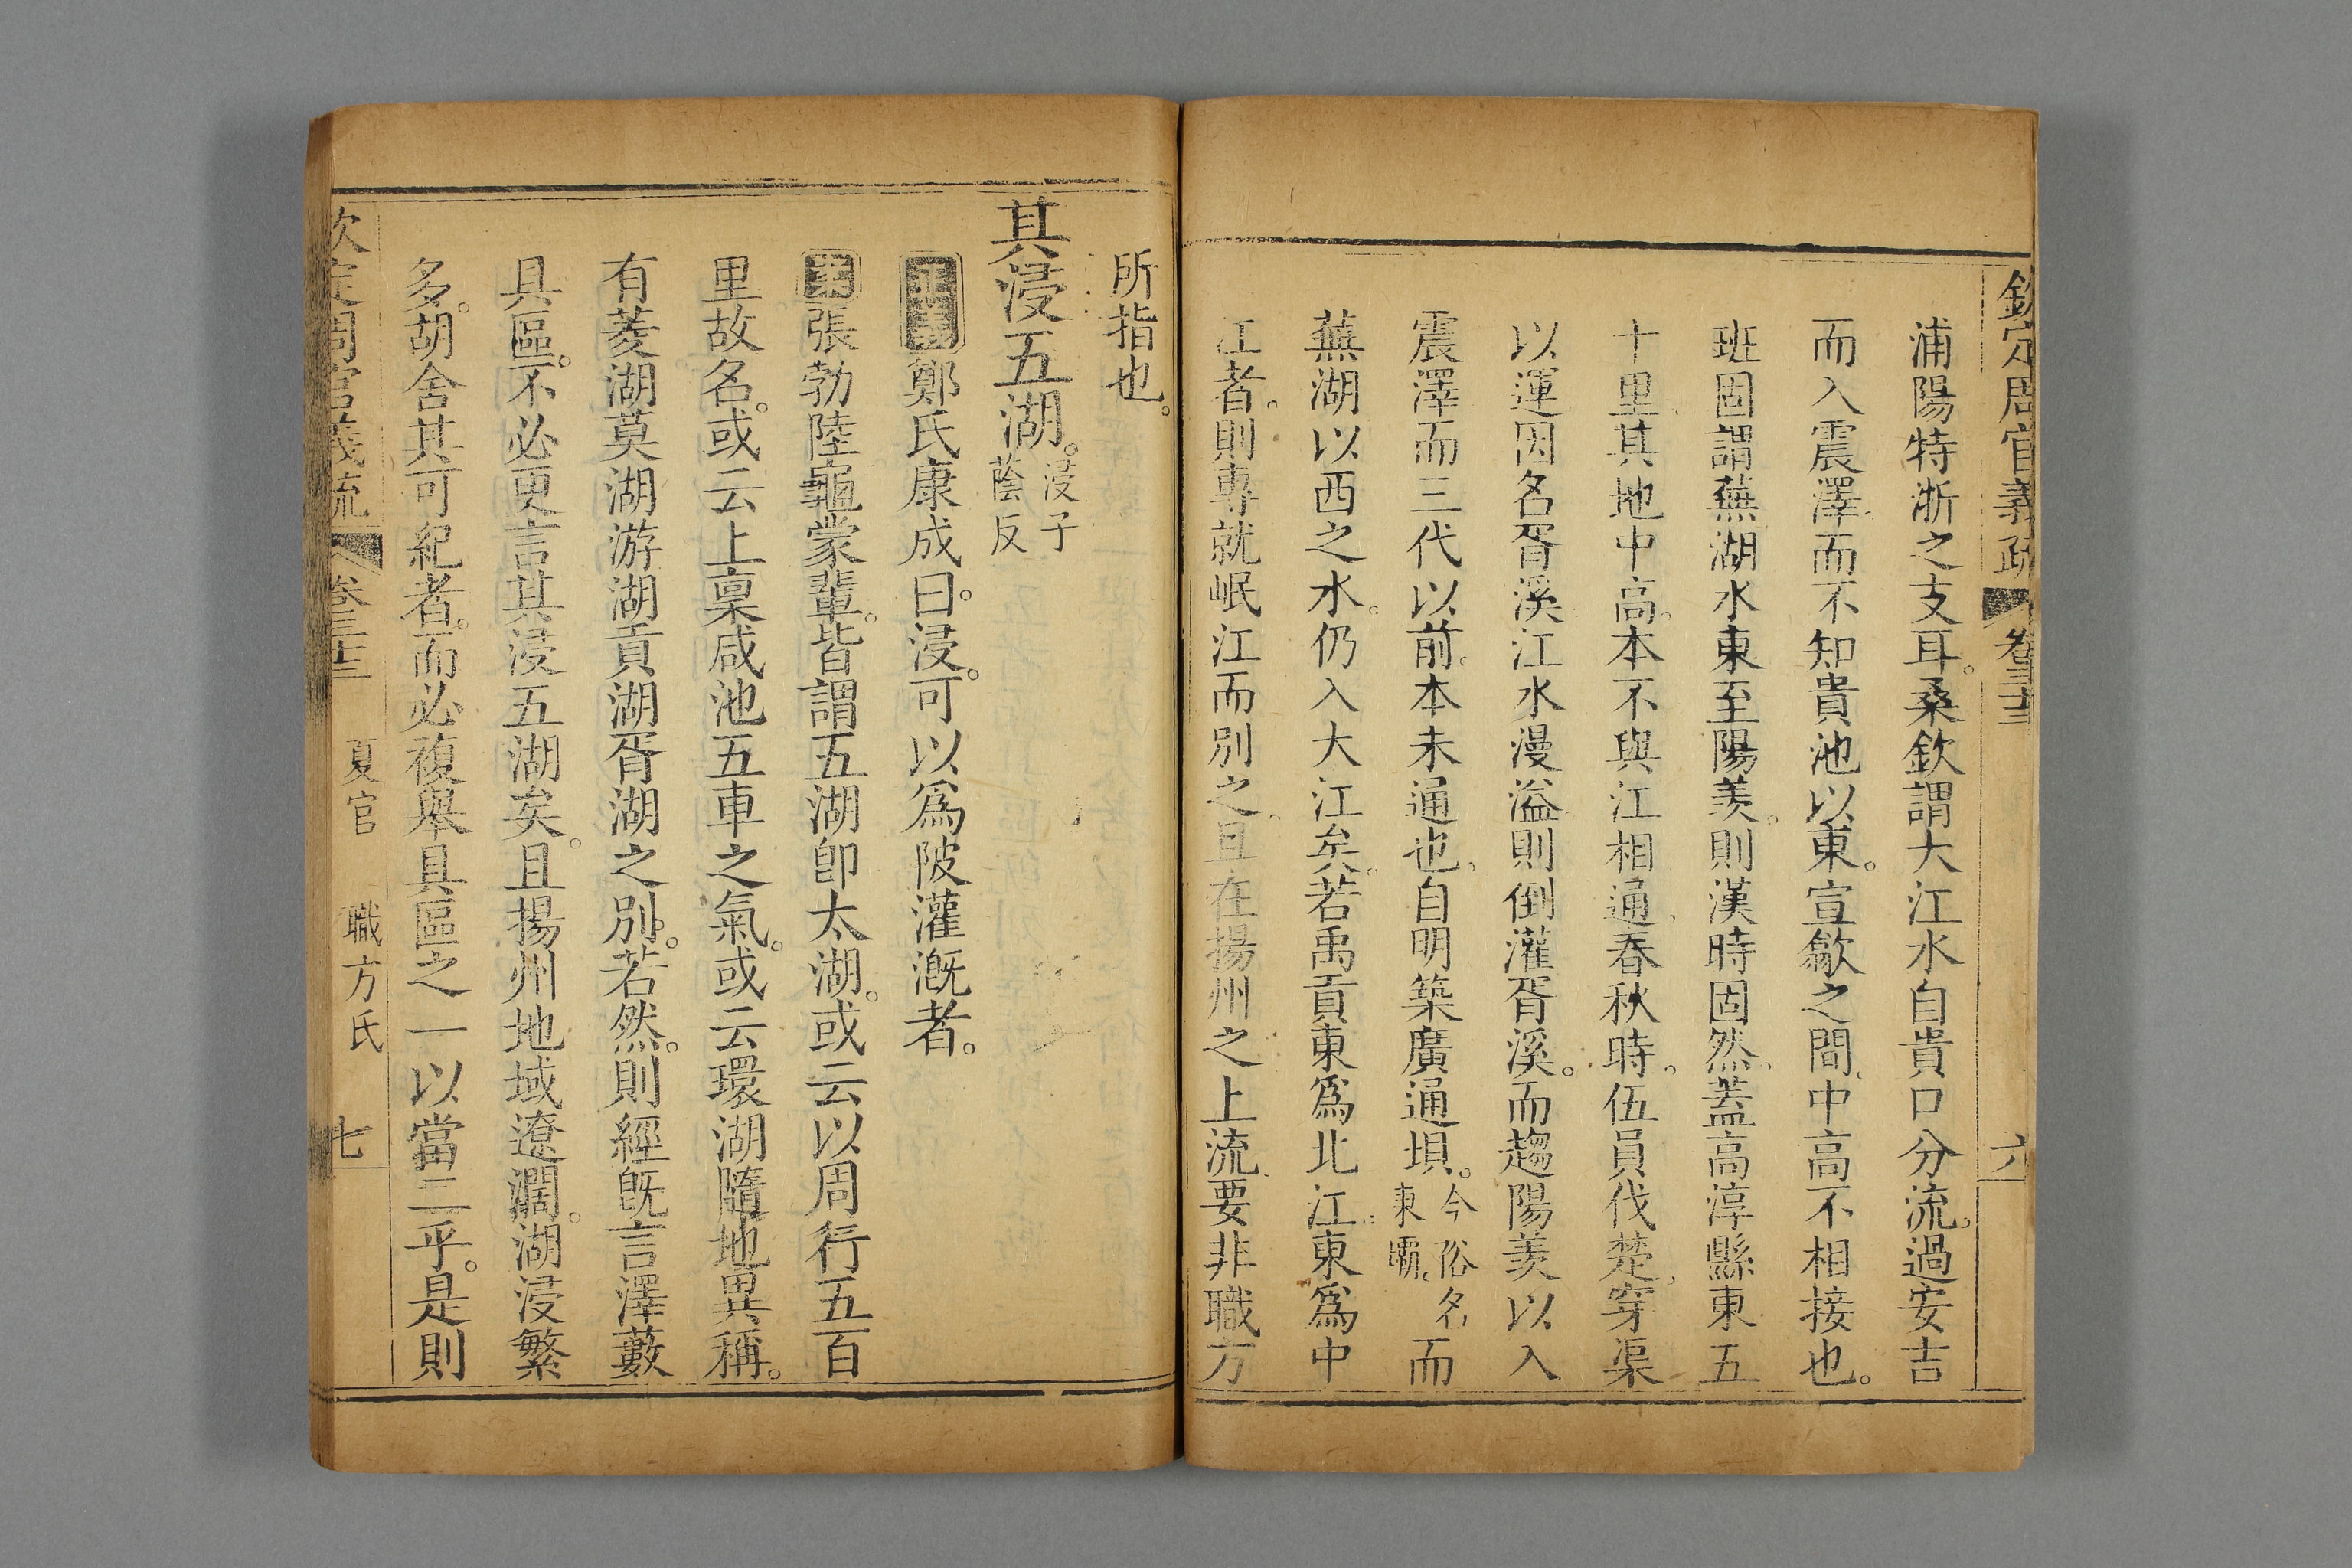 欽定周官義疏 卷三十三 六
浦陽特浙之支耳。桑欽謂大江水自貴口分流。過安吉
而入震澤。而不知貴池以東。宣歙之間。中高不相接也。
班固謂蕪湖水東至陽羨。則漢時固然。蓋高淳縣東五
十里。其地中高。本不與江相通。春秋時。伍員伐楚。穿渠
以運。因名胥溪。江水漫溢。則倒灌胥溪。而趨陽羨以入
震澤。而三代以前。本未通也。自明築廣通垻。今俗名東壩。而
蕪湖以西之水。仍入大江矣。若禹貢東爲北江。東爲中
江者。則專就岷江而別之。且在揚州之上流。要非職方
所指也。
其浸五湖。浸子蔭反
正義鄭氏康成曰。浸。可以爲陂灌漑者。
案張勃陸龜蒙輩。皆謂五湖卽太湖。或云以周行五百
里故名。或云上稟咸池五車之氣。或云環湖隨地異稱。
有菱湖莫湖游湖貢湖胥湖之別。若然。則經旣言澤藪
具區。不必更言其浸五湖矣。且揚州地域遼濶。湖浸繁
多。胡舍其可紀者。而必複舉具區之一以當二乎。是則
欽定周官義疏 卷三十三 夏官 職方氏 七